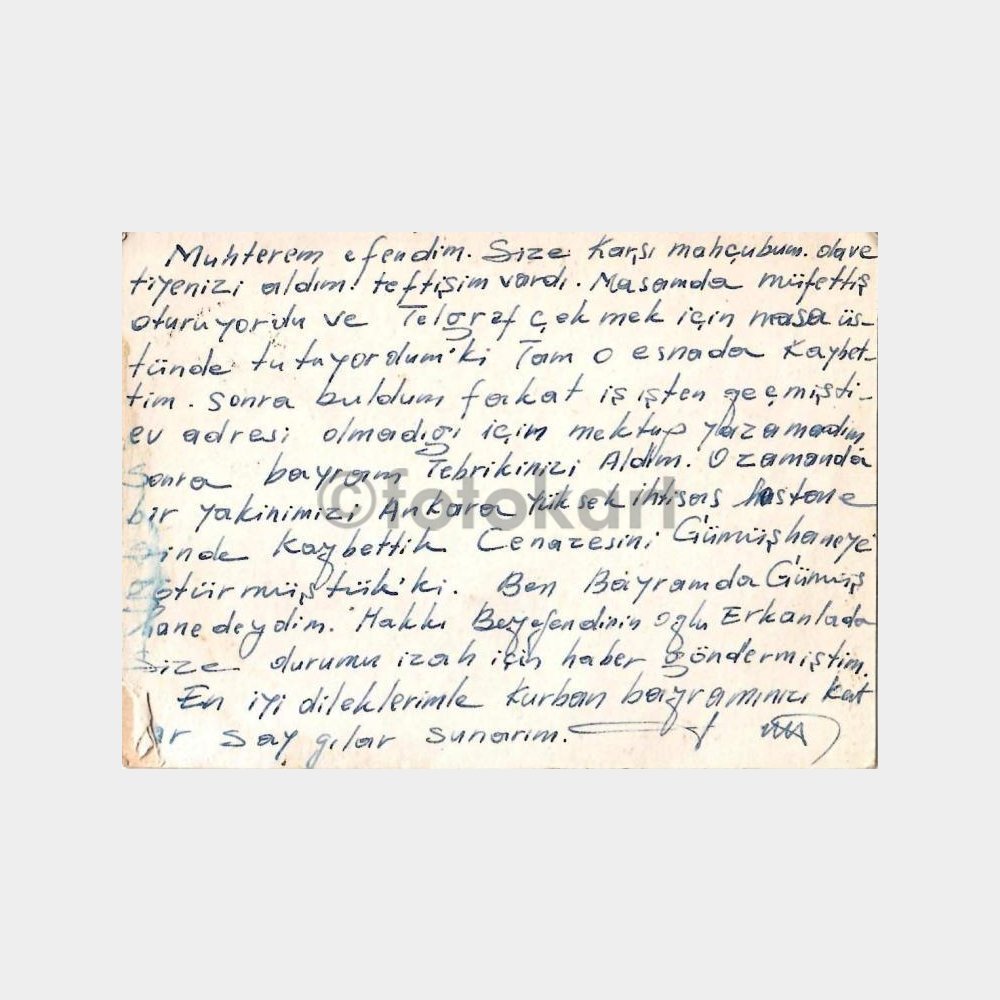 Muhterem efendim. Size Karşı mahçubum. dave
tiyenizi aldım. teftişim vardı. Masamda müfettiş
oturuyordu ve Telgraf çekmek için masa üs-
tünde tutuyordum'ki Tam o esnada Kaybet-
tim. sonra buldum fakat iş işten geçmişti-
ev adresi olmadıgı içim mektup yazamadım
Sonra bayram Tebrikinizi Aldım. O zamanda
bir yakinimizi Ankara yüksek ihtisas hastane
sinde Kaybettik Cenazesini Gümüşhaneye
götürmüştük'ki. Ben Bayramda Gümüş
hanedeydim. Hakkı Beyefendinin oglu Erkanlada
size durumu izah için haber göndermiştim.
En iyi dileklerimle Kurban bayramınızı Kut
lar saygılar sunarım.
©fotokart